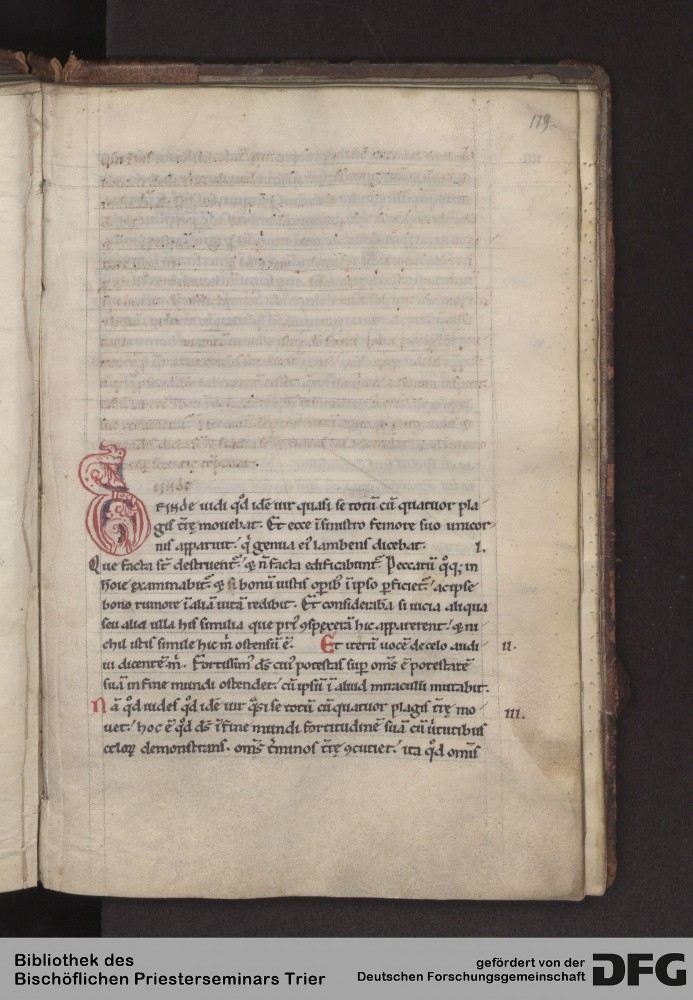 119
einde
Deinde uidi qd idē uir quasi se totū cū quatuor pla
gis t̄rę mouebat. Et ecce ī sinistro femore suo unicor
nis apparuit / q̓ genua ei᷒ lambens dicebat. I.
Que facta st̄ destruent᷑. ⁊ q̄ n̄ facta edificabunt᷑. Peccatū qq; in
hoīe examinabit᷑. ⁊ si bonū iustis opib᷒ ī ipso pficiet᷑. ac ipse
bono rumore ī aliā uitā redibit. Et considerabā si uicia aliqua
seu alia ulla his similia que pri᷒ ꝯspexerā hic apparerent. ⁊ ni
chil istis simile hic m̄ ostensū ē. Et iterū uocē de celo audi II.
ui dicentē m̄. Fortissim᷒ ds̄ cui᷒ potestas sup om̄s ē potestatē
suā in fine mundi ostendet. cū ipsū ī aliud miraculū mutabit.
Nā qd uides qd idē uir q̓si se totū cū quatuor plagis t̄rę mo III.
uet. hoc ē qd ds̄ ī fine mundi fortitudinē suā cū uirtutibus
celoꝝ demonstrans. om̄s t̄minos t̄rę ꝯcutiet. ita qd om̄is
Bibliothek des
Bischöflichen Priesterseminars Trier
gefördert von der
Deutschen Forschungsgemeinschaft
DFG